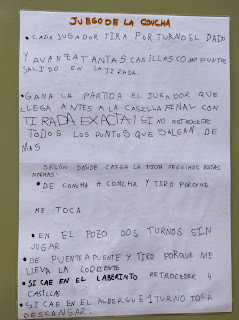 JUEGO DE LA CONCHA
• CADA JUGADOR TIRA POR TURNO EL DADO
Y AVANZA TANTAS CASILLAS COMO PUNTOS
SALIDO EN LA TIRADA.
• GANA LA PARTIDA EL JUGADOR QUE
LLEGA ANTES A LA CASILLA FINAL CON
TIRADA EXACTA Y SI NO RETROCEDE
TODOS LOS PUNTOS QUE SALGAN DE
MAS
SEGÚN DONDE CAIGA LA FICHA SEGUIMOS ESTAS
NORMAS:
• DE CONCHA A CONCHA Y TIRO PORQUE
ME TOCA
• EN EL POZO DOS TURNOS SIN
JUGAR
• DE PUENTE A PUENTE Y TIRO PORQUE ME
LLEVA LA CORRIENTE
• SI CAE EN EL LABERINTO RETROCEDER 4
CASILLAS
• SI CAE EN EL ALBERGUE 1 TURNO TOCA
DESCANSAR.